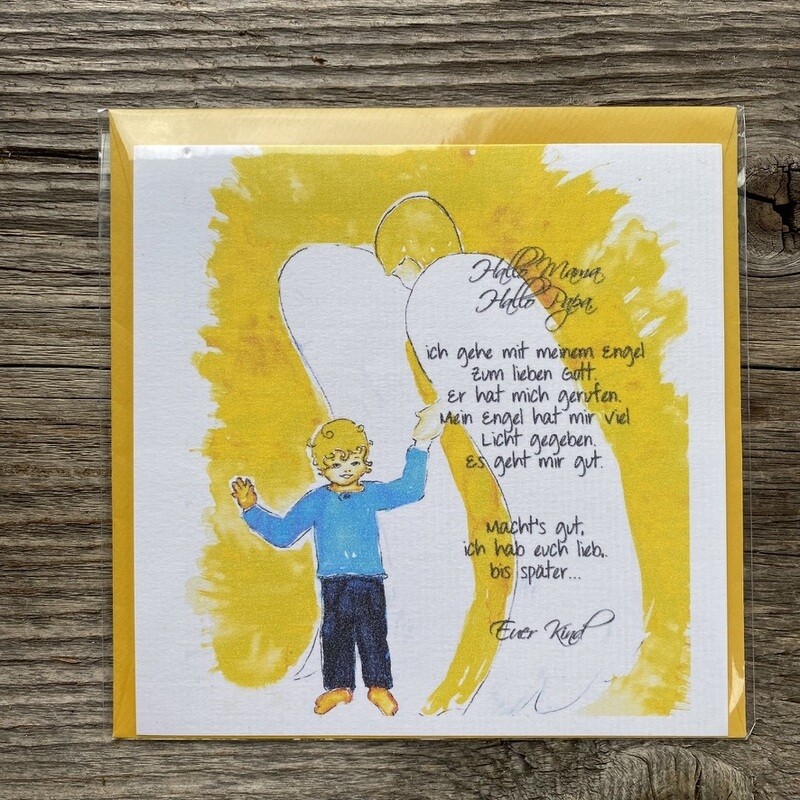 Hallo Mama,
Hallo Papa,
ich gehe mit meinem Engel
zum lieben Gott.
Er hat mich gerufen.
Mein Engel hat mir viel
Licht gegeben.
Es geht mir gut.
Macht's gut,
ich hab euch lieb,
bis später...
Euer Kind